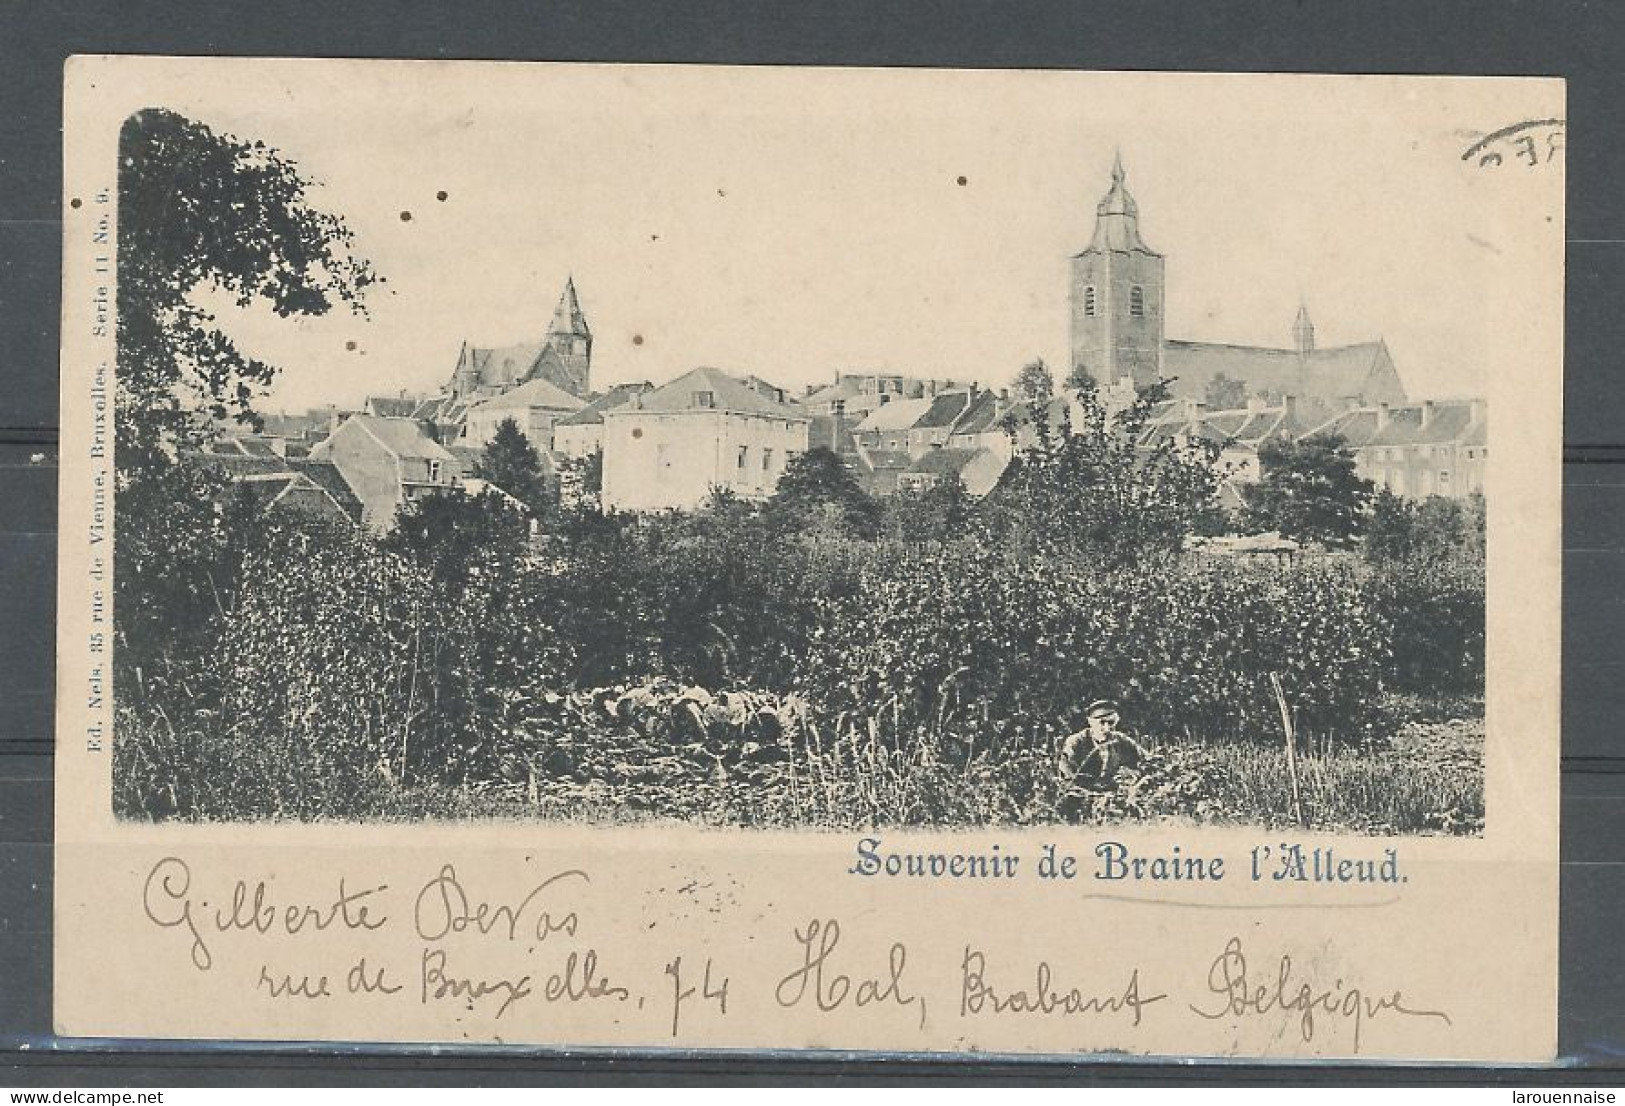 Ed. Nels, 35 rue de Vienne, Bruxelles. Serie 11 No. 9.
Souvenir de Braine l'Alleud.
Gilberte DeVos
rue de Bruxelles, 74 Hal, Brabant Belgique
delcampe.net
larouennaise